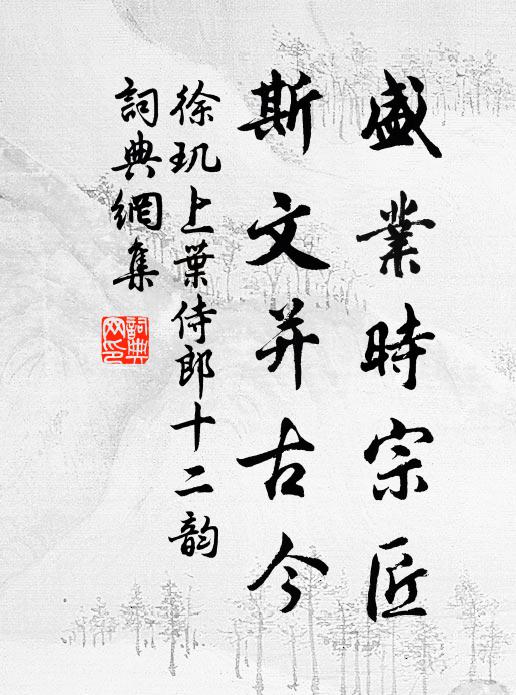 盛業時宗匠
斯文并古今
徐玑上葉侍郎十二韵
詞典網集
詞典網印